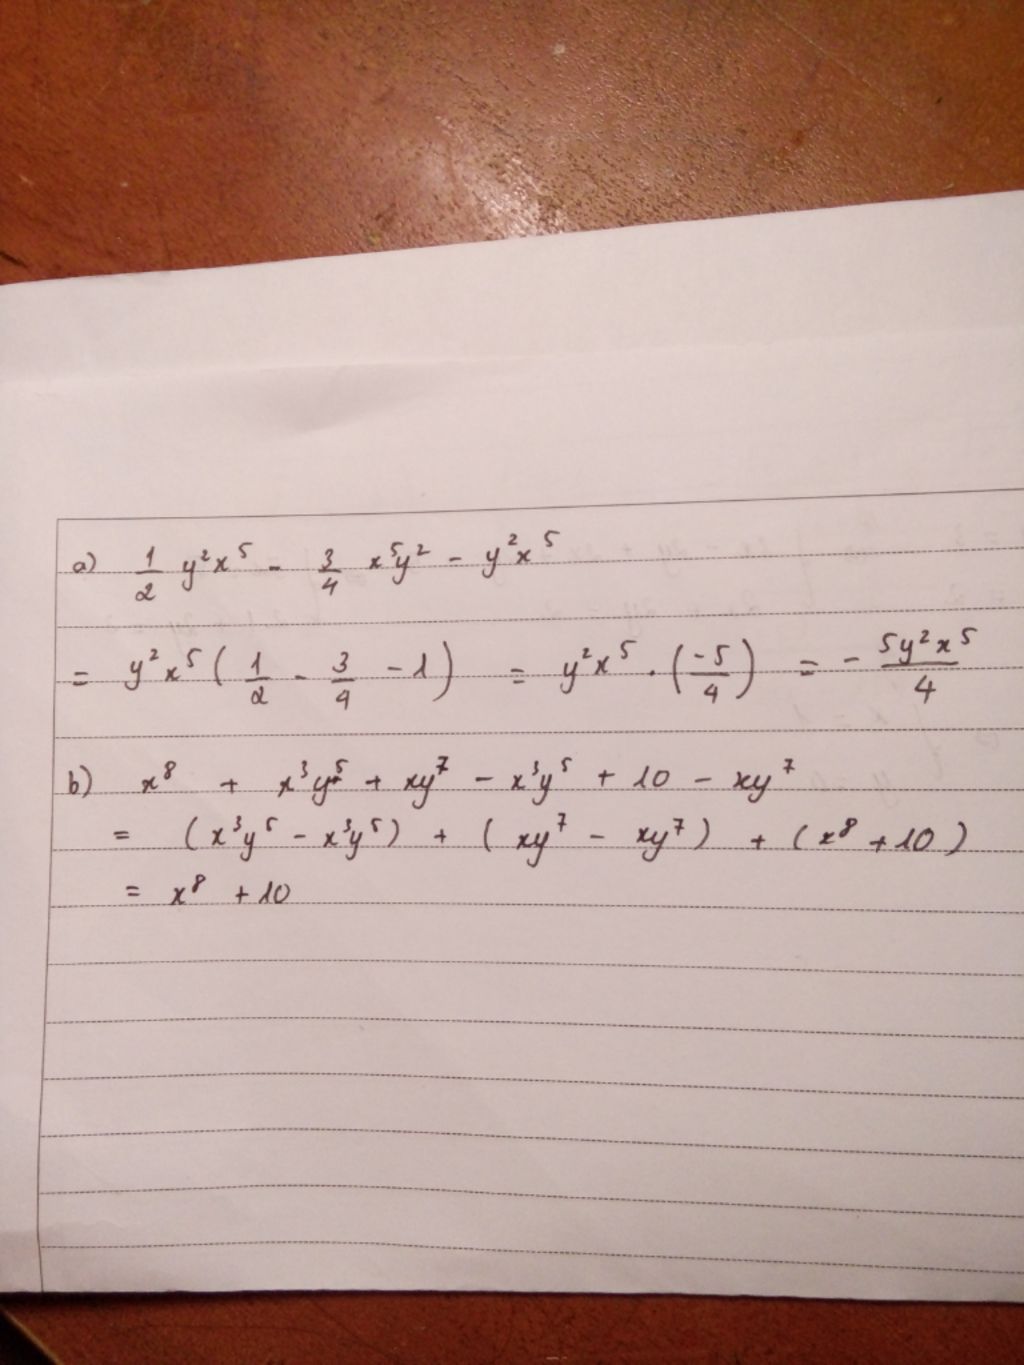 a) 1/2 y²x⁵ - 3/4 x⁵y² - y²x⁵
= y²x⁵ ( 1/2 - 3/4 - 1 ) = y²x⁵ . ( -5/4 ) = - 5y²x⁵/4
b) x⁸ + x³y⁵ + xy⁷ - x³y⁵ + 10 - xy⁷
= ( x³y⁵ - x³y⁵ ) + ( xy⁷ - xy⁷ ) + ( x⁸ + 10 )
= x⁸ + 10